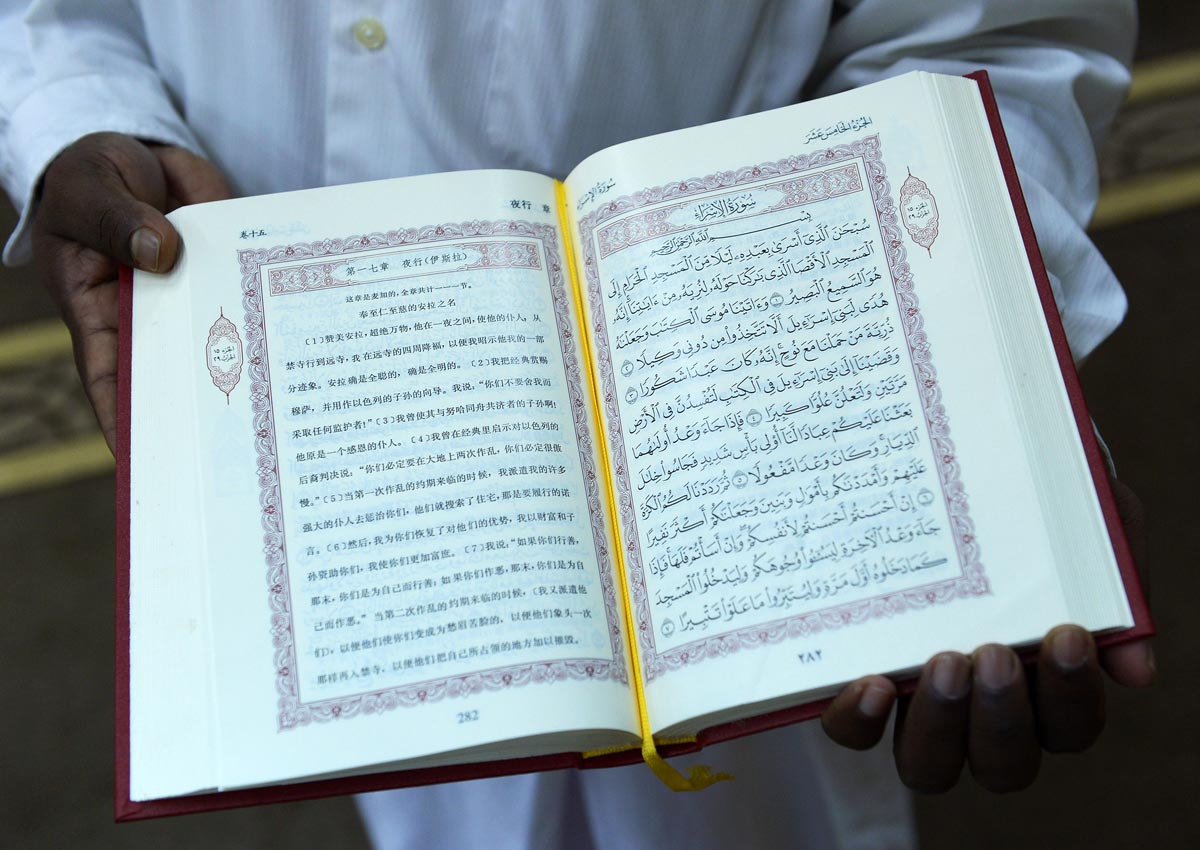 卷十五
夜行　章
第一七章　夜行(伊斯拉)
这章是麦加的,全章共计一一一节。
奉至仁至慈的安拉之名
〔1〕赞美安拉,超绝万物,他在一夜之间,使他的仆人,从
禁寺行到远寺,我在远寺的四周降福,以便我昭示他我的一部
分迹象。安拉确是全聪的,确是全明的。〔2〕我把经典赏赐
穆萨,并用作以色列的子孙的向导。我说:“你们不要舍我而
采取任何监护者!”〔3〕我曾使其与努哈同舟共济者的子孙啊!
他原是一个感恩的仆人。〔4〕我曾在经典里启示对以色列的
后裔判决说:“你们必定要在大地上两次作乱,你们必定很傲
慢。”〔5〕当第一次作乱的约期来临的时候,我派遣我的许多
强大的仆人去惩治你们,他们就搜索了住宅,那是要履行的诺
言。〔6〕然后,我为你们恢复了对他们的优势,我以财富和子
孙资助你们,我使你们更加富庶。〔7〕我说:“如果你们行善,
那末,你们是为自己而行善;如果你们作恶,那末,你们是为自
己而作恶。”当第二次作乱的约期来临的时候,(我又派遣他
们),以便他们使你们变成为愁眉苦脸的,以便他们象头一次
那样再入禁寺,以便他们把自己所占领的地方加以摧毁。
الجزء ١٥
الحزب ٢٩
282
الجُزْءُ الخَامِسَ عَشَرَ
سُورَةُ الإِسْرَاءِ
سُورَةُ الإِسْرَاءِ
بِسْمِ ٱللَّهِ ٱلرَّحْمَٰنِ ٱلرَّحِيمِ
سُبْحَٰنَ ٱلَّذِىٓ أَسْرَىٰ بِعَبْدِهِۦ لَيْلًا مِّنَ ٱلْمَسْجِدِ ٱلْحَرَامِ إِلَى
ٱلْمَسْجِدِ ٱلْأَقْصَا ٱلَّذِى بَٰرَكْنَا حَوْلَهُۥ لِنُرِيَهُۥ مِنْ ءَايَٰتِنَآ إِنَّهُۥ
هُوَ ٱلسَّمِيعُ ٱلْبَصِيرُ ١ وَءَاتَيْنَا مُوسَى ٱلْكِتَٰبَ وَجَعَلْنَٰهُ
هُدًى لِّبَنِىٓ إِسْرَٰٓءِيلَ أَلَّا تَتَّخِذُوا۟ مِن دُونِى وَكِيلًا ٢
ذُرِّيَّةَ مَنْ حَمَلْنَا مَعَ نُوحٍ إِنَّهُۥ كَانَ عَبْدًا شَكُورًا ٣
وَقَضَيْنَآ إِلَىٰ بَنِىٓ إِسْرَٰٓءِيلَ فِى ٱلْكِتَٰبِ لَتُفْسِدُنَّ فِى ٱلْأَرْضِ
مَرَّتَيْنِ وَلَتَعْلُنَّ عُلُوًّا كَبِيرًا ٤ فَإِذَا جَآءَ وَعْدُ أُولَىٰهُمَا
بَعَثْنَا عَلَيْكُمْ عِبَادًا لَّنَآ أُو۟لِى بَأْسٍ شَدِيدٍ فَجَاسُوا۟ خِلَٰلَ
ٱلدِّيَارِ وَكَانَ وَعْدًا مَّفْعُولًا ٥ ثُمَّ رَدَدْنَا لَكُمُ ٱلْكَرَّةَ
عَلَيْهِمْ وَأَمْدَدْنَٰكُم بِأَمْوَٰلٍ وَبَنِينَ وَجَعَلْنَٰكُمْ أَكْثَرَ نَفِيرًا ٦
إِنْ أَحْسَنتُمْ أَحْسَنتُمْ لِأَنفُسِكُمْ وَإِنْ أَسَأْتُمْ فَلَهَا فَإِذَا
جَآءَ وَعْدُ ٱلْءَاخِرَةِ لِيَسُۥٓـُٔوا۟ وُجُوهَكُمْ وَلِيَدْخُلُوا۟ ٱلْمَسْجِدَ
كَمَا دَخَلُوهُ أَوَّلَ مَرَّةٍ وَلِيُتَبِّرُوا۟ مَا عَلَوْا۟ تَتْبِيرًا ٧
الجزء ١٥
الحزب ٢٩
٢٨٢